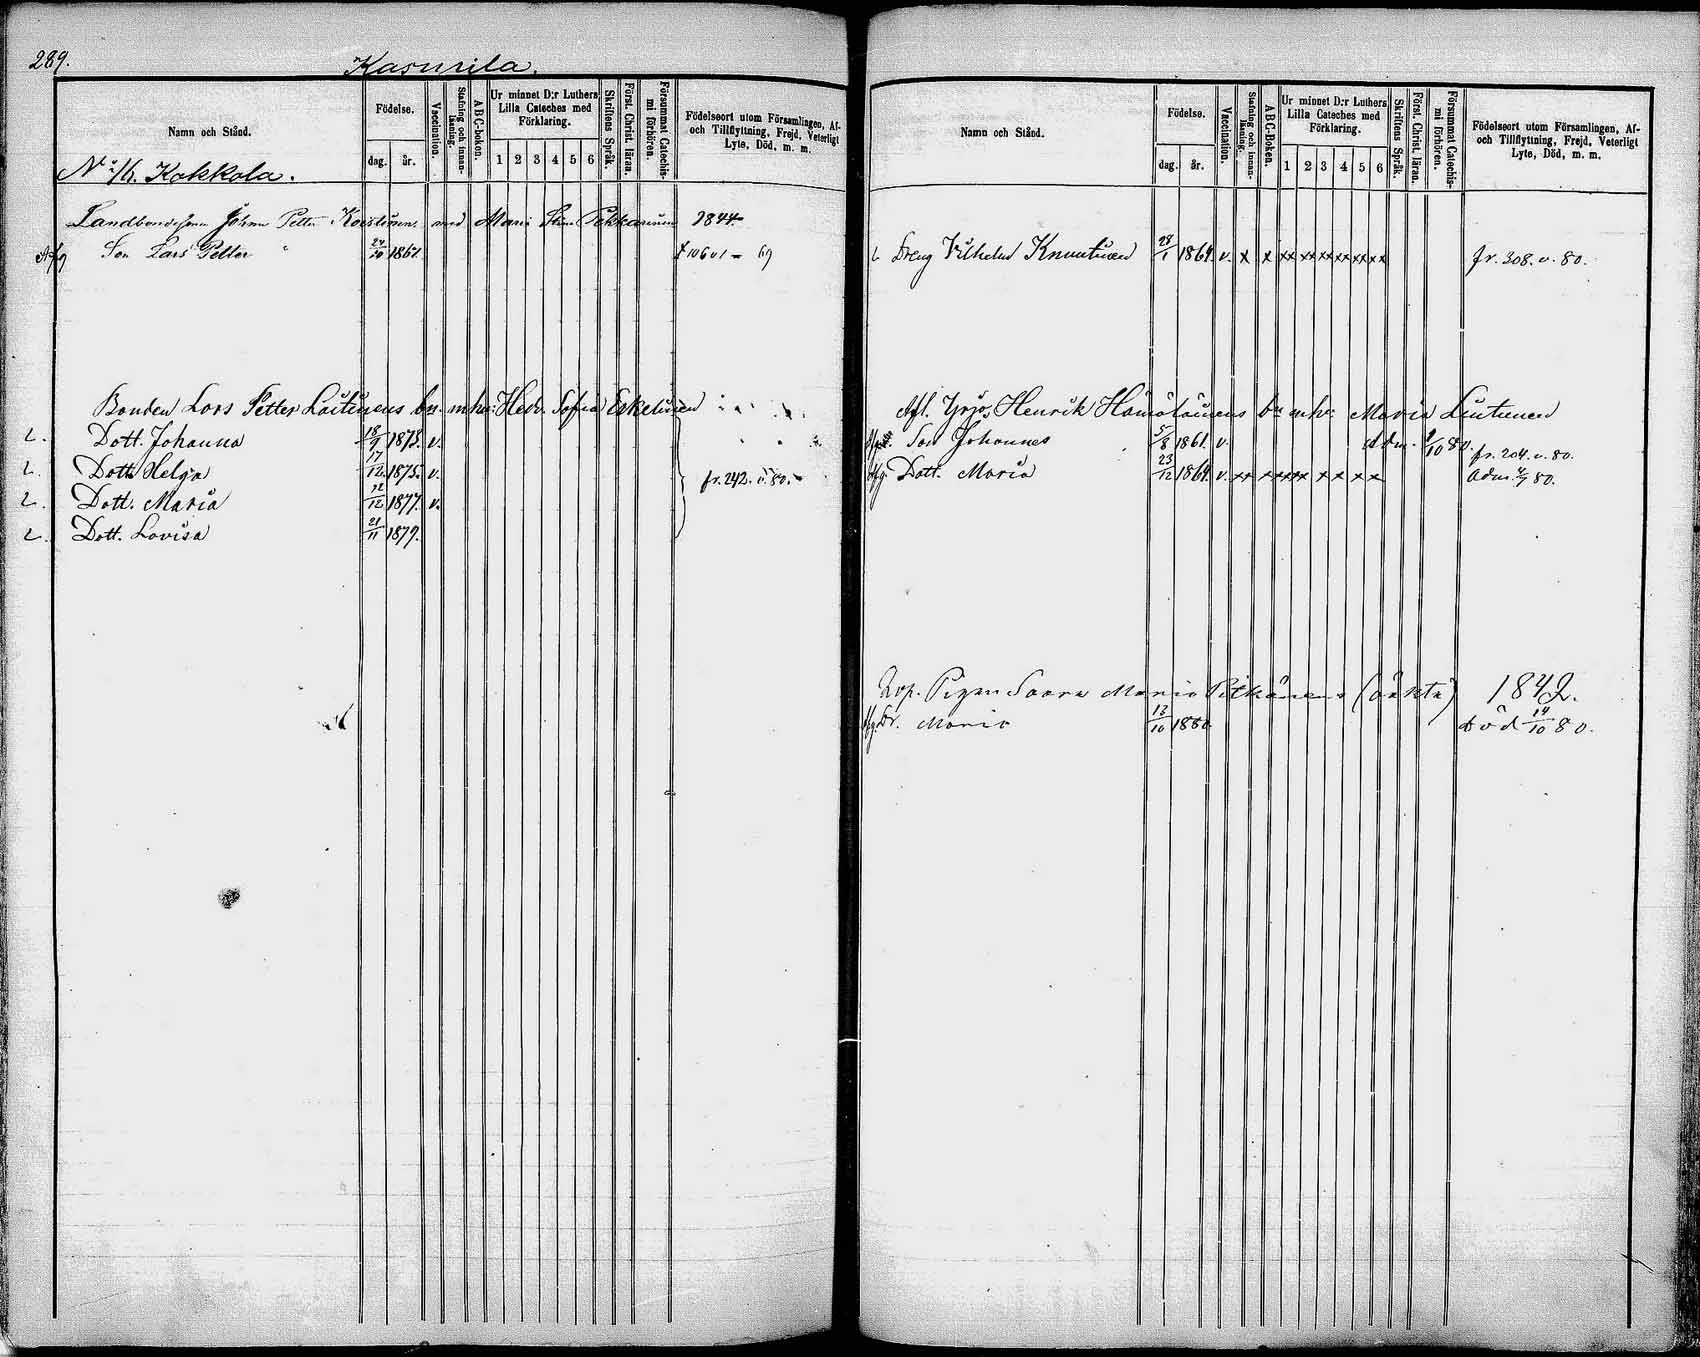 289.
Kasurila.
Namn och Stånd.
Födelse.
dag. år.
Vaccination.
Stafning och innan-läsning.
A B C-boken.
Ur minnet D:r Luthers Lilla Cateches med Förklaring.
1 2 3 4 5 6
Skriftens Språk.
Först. Christ. läran.
Försummat Catechis-mi förhören.
Födelseort utom Församlingen, Af- och Tillflyttning, Frejd, Veterligt Lyte, Död, m. m.
No 16. Kokkola.
Landbondesonen Johan Petter med Maria Stina Pekkarinen 1844
Afg Son Lars Petter " 1867. 69
Bonden Lars Petter Laitinens bn. m. h. Hedv. Sofia Eskelinen
L. Dott. Johanna 18/9 1873. v.
L. Dott. Helga 17/12 1875. v. fr. 242. v. 80.
L. Dott. Maria 12/12 1877. v.
L. Dott. Lovisa 21/11 1879.
Namn och Stånd.
Födelse.
dag. år.
Vaccination.
Stafning och innan-läsning.
A B C-Boken.
Ur minnet D:r Luthers Lilla Cateches med Förklaring.
1 2 3 4 5 6
Skriftens Språk.
Först. Christ. läran.
Försummat Catechis-mi förhören.
Födelseort utom Församlingen, Af- och Tillflyttning, Frejd, Veterligt Lyte, Död, m. m.
L Dreng Vilhelm Knuutinen 28/1 1864. v. x x xx xx xx xx xx xx fr. 308. v. 80.
Afl. Yrjö Henrik Hämäläinens bn m. h. Maria Lintunen
Son Johannes 5/8 1861. v. adm. 80. fr. 204. v. 80.
Afg Dott. Maria 23/12 1864. v. xx x xx xx x x x x Adm. 4/7 80.
Pigan Saara Maria Pitkänens (oäkta) 1842.
Afg. Dr. Maria 13/10 1880 död 14/10 80.